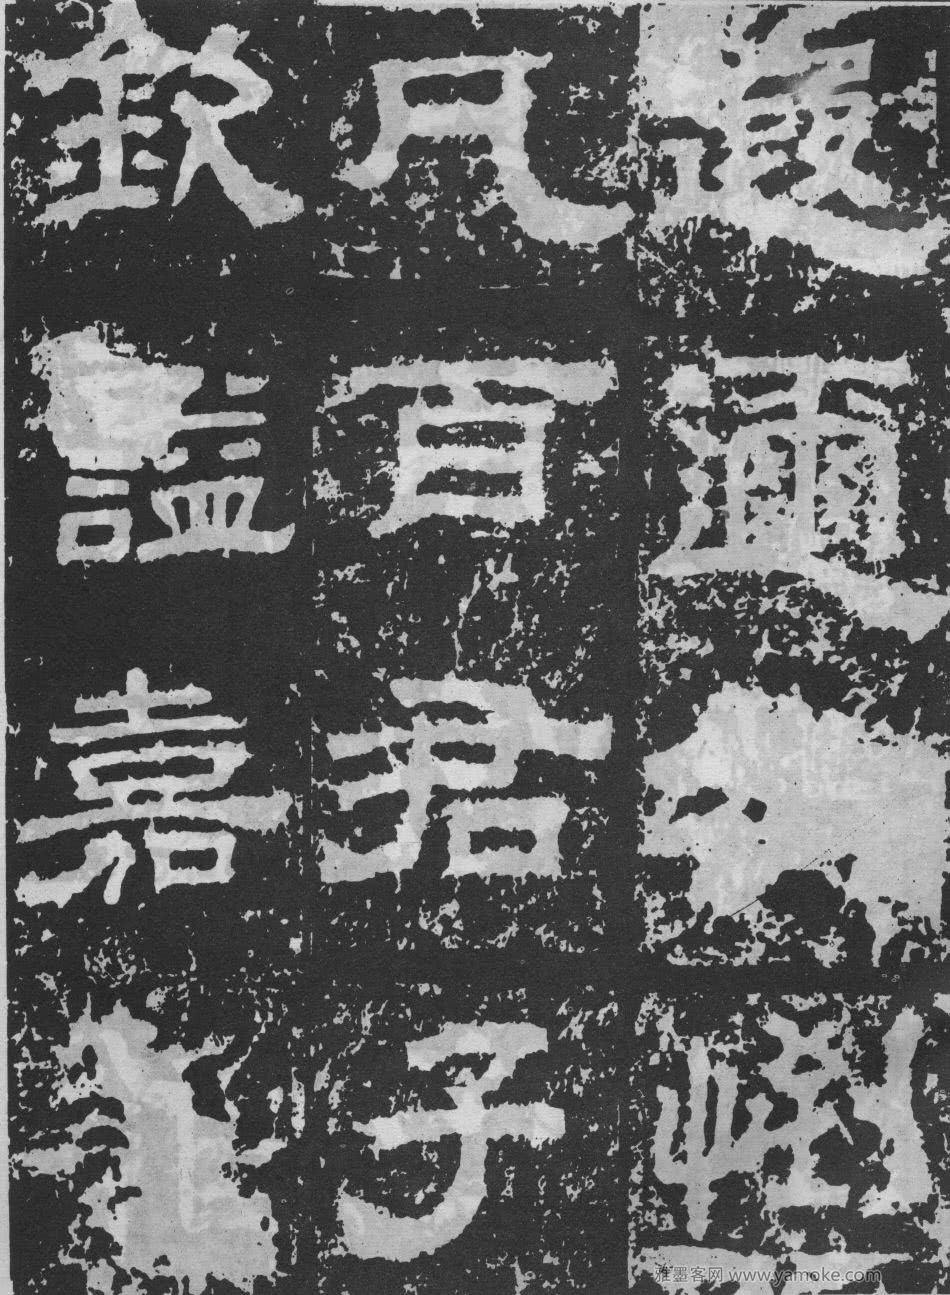 遐邇
凡百君子
欽謚嘉
雅墨客网 www.yamoke.com